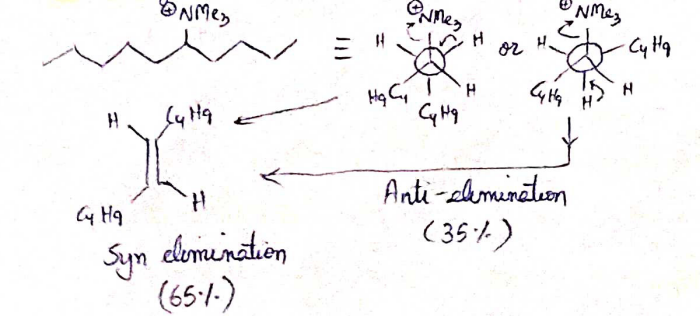 ⊕NMe3
≡
⊕NMe3
H H
H
H9C4
C4H9
or
⊕NMe3
H C4H9
C4H9 H
H
H C4H9
C4H9 H
Syn elimination
(65%)
Anti-elimination
(35%)